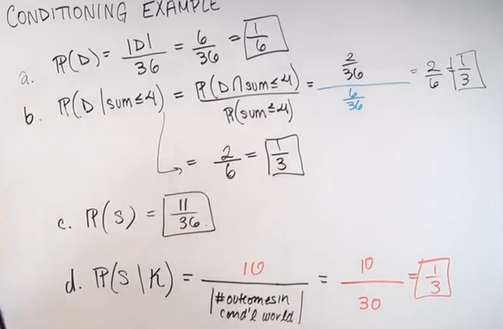 CONDITIONING EXAMPLE
a. P(D) = |D|/36 = 6/36 = 1/6
b. P(D | sum≤4) = P(D∩sum≤4)/P(sum≤4) = 2/36 / 6/36 = 2/6 = 1/3
= 2/6 = 1/3
c. P(S) = 11/36
d. P(S | K) = 10/|#outcomes in cond'l world| = 10/30 = 1/3